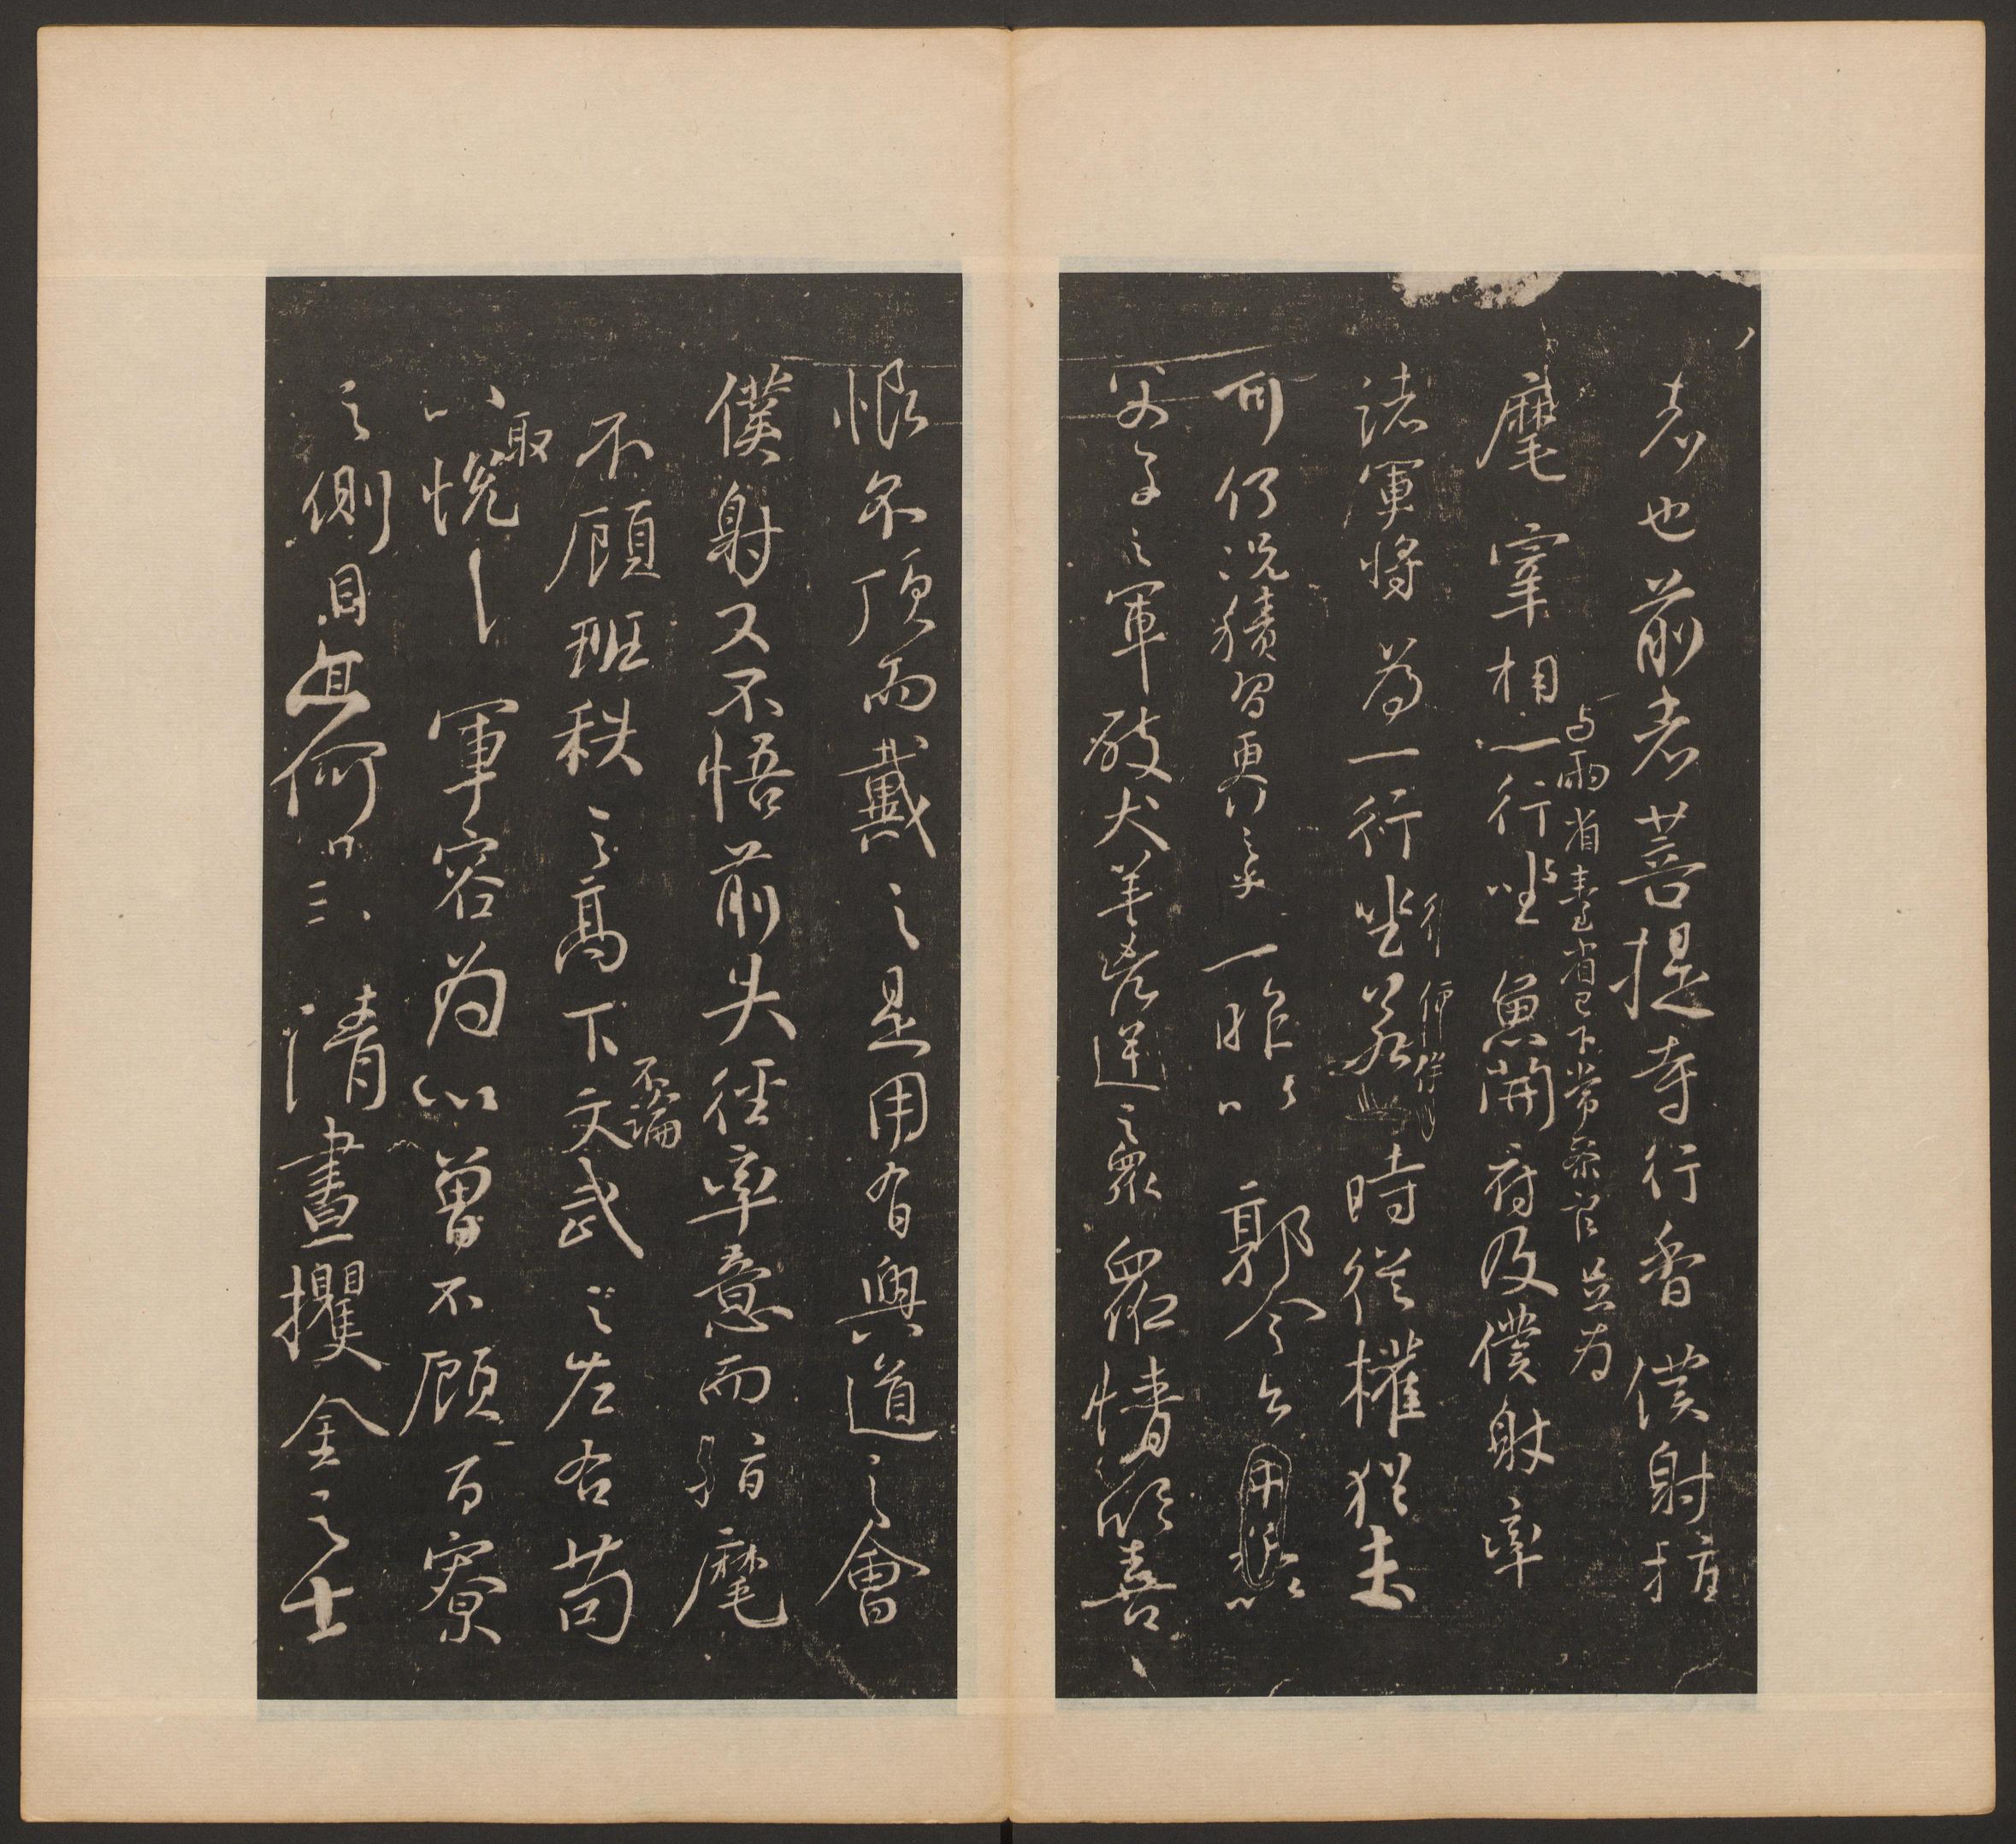 者也前者菩提寺行香僕射指
与兩省臺省已下常參官並為
麾宰相一行坐魚開府及僕射率
諸軍將為一行坐若時從權猶未
可何況積習更行之乎一昨以郭令公以
父子之軍破犬羊兇逆之眾眾情欣喜
恨不頂而戴之是用有興道之會
僕射又不悟前失徑率意而指麾
不顧班秩之高下文武之左右苟
不論
取
以悅軍容為心曾不顧百寮
之側目亦何異清晝攫金之士